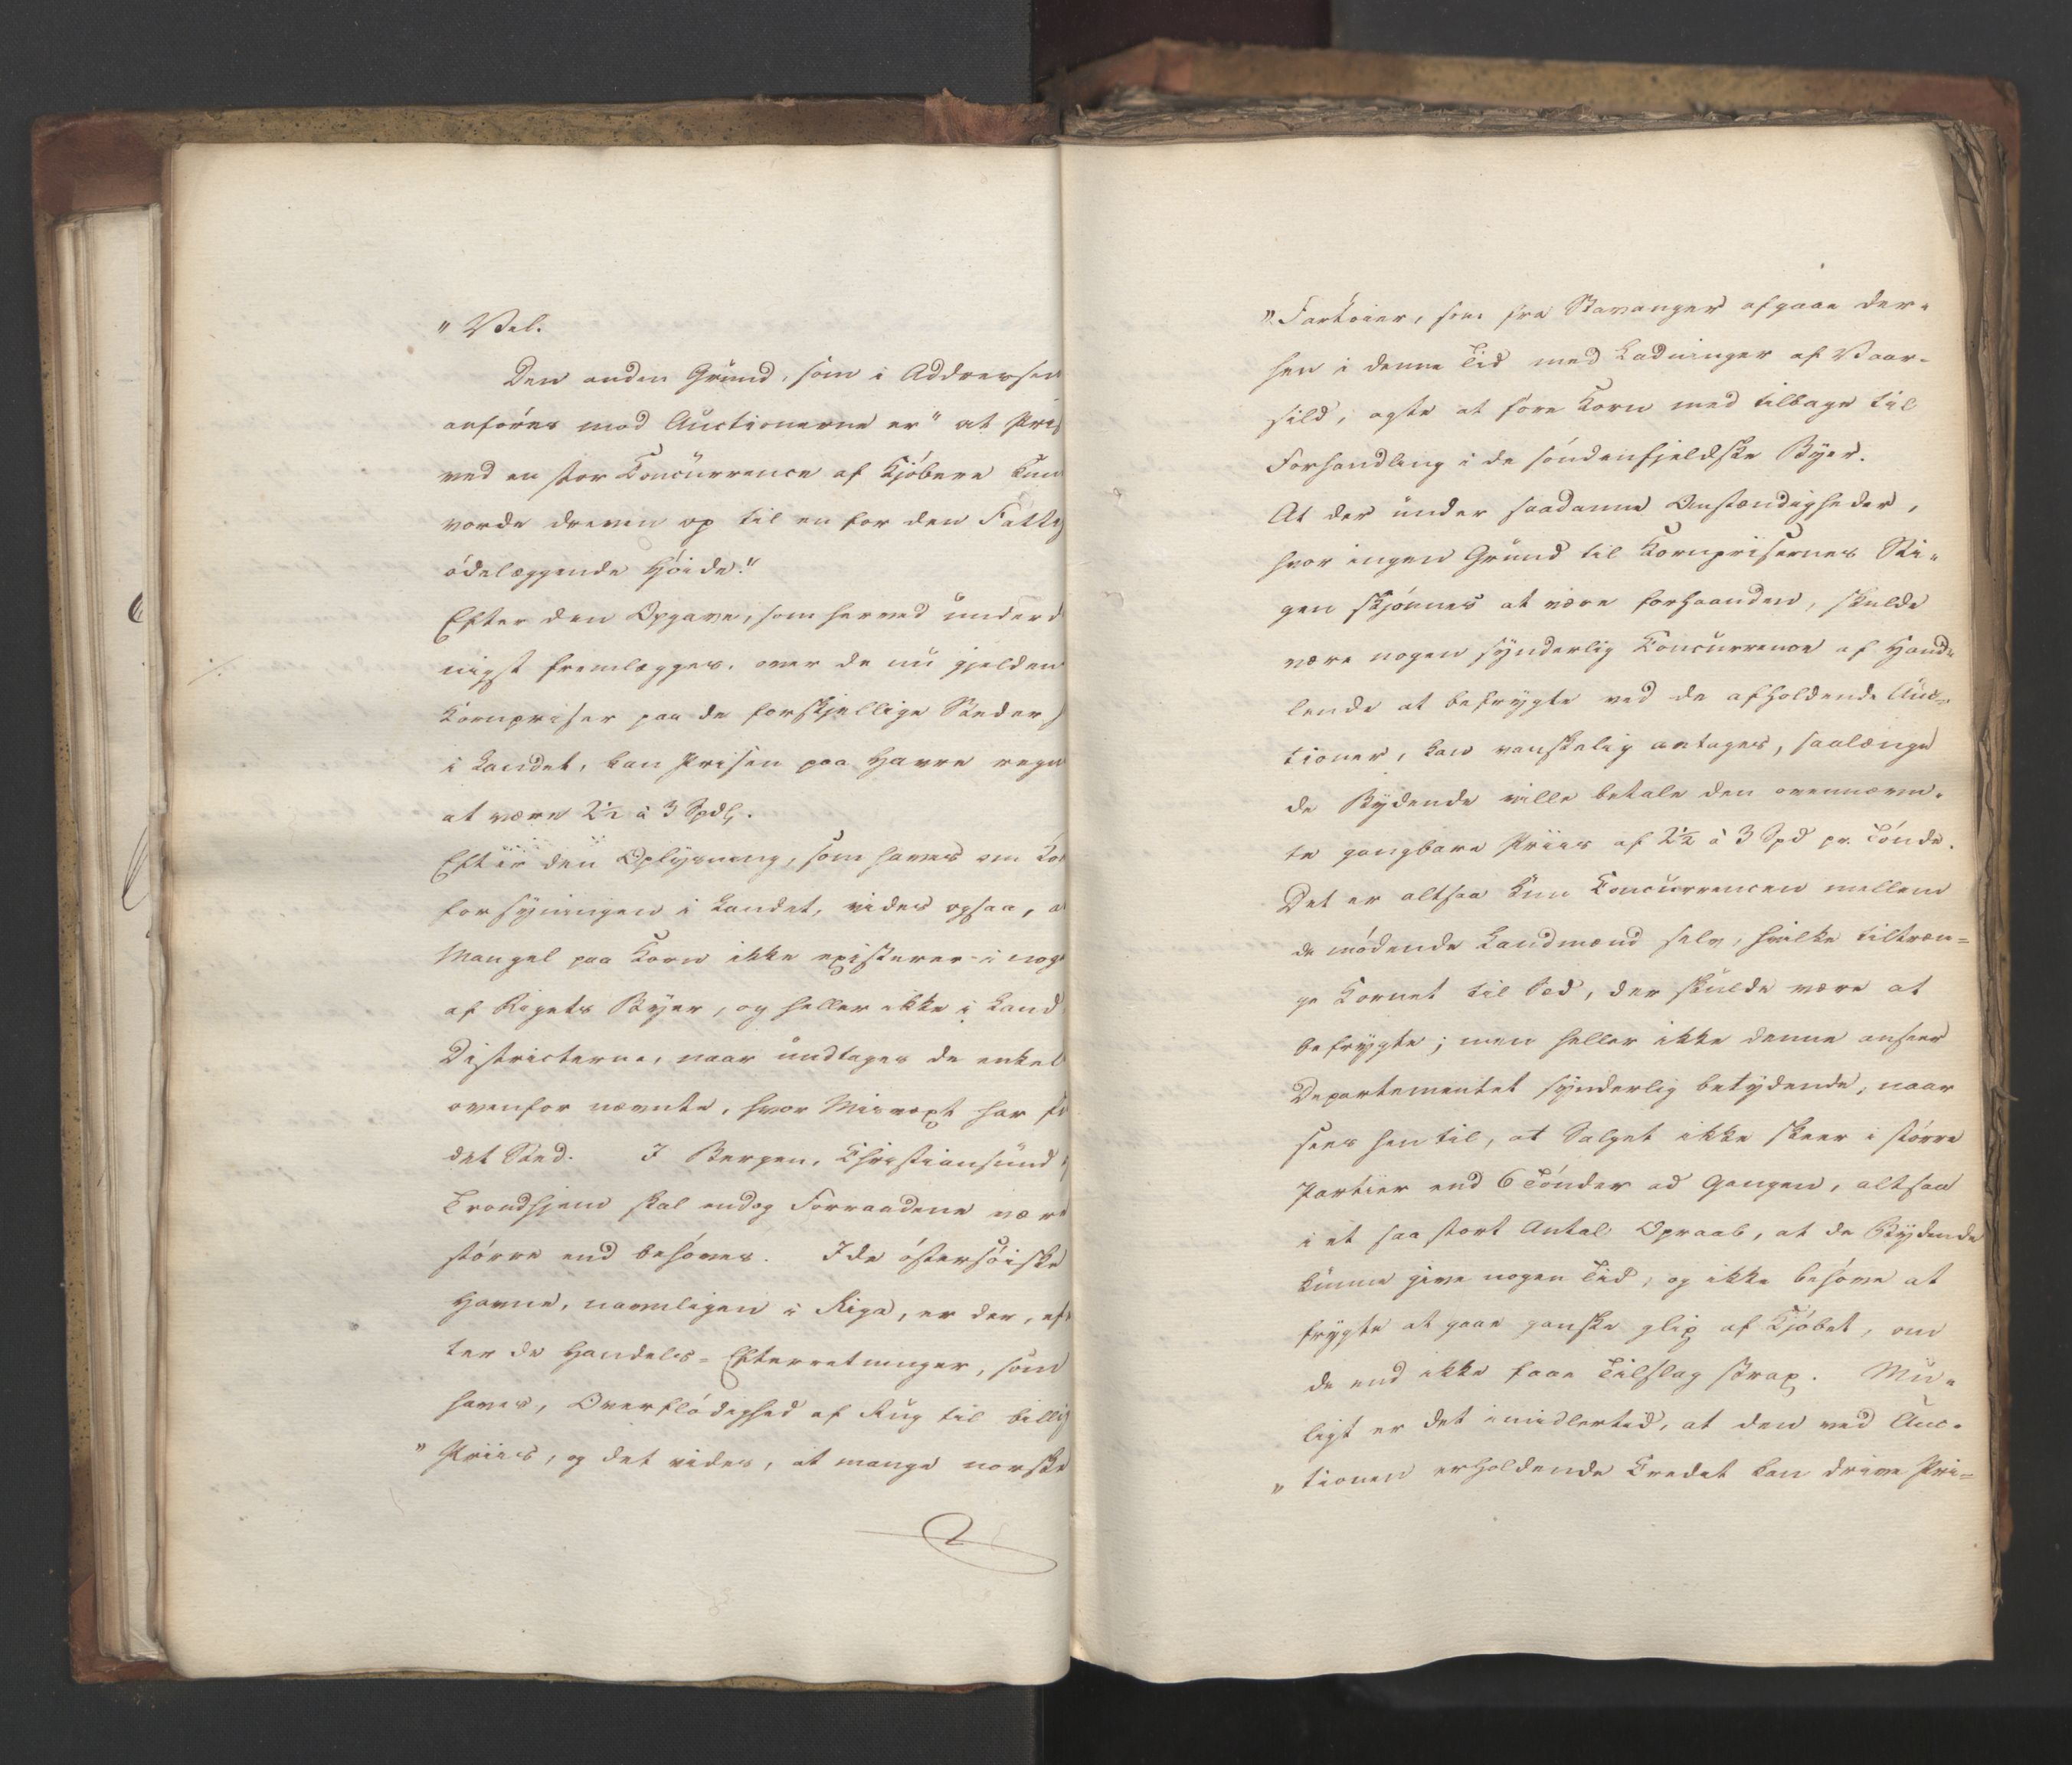 " Vel.
Den anden Grund, som i Addressen
anføres mod Auctionerne er " at Pris
ved en stor Concurrence af Kjøbere kun
vorde dreven op til en for den Fattig
ødelæggende Høide."
Efter den Opgave, som herved underd
nigst fremlægges, over de nu gjelden
Kornpriser paa de forskjellige Steder
i Landet, kan Prisen paa Havre regn
at være 2½ à 3 Spd.
Efter den Oplysning, som haves om Ko
forsyningen i Landet, vides ogsaa, a
Mangel paa Korn ikke existerer i nog
af Rigets Byer, og heller ikke i Land
Districterne, naar undtages de enkel
ovenfor nævnte, hvor Misvæxt har f
det Sted. I Bergen, Christiansund
Trondhjem skal endog Forraadene være
større end behøves. I de østersøiske
Havne, navnligen i Riga, er der, ef
ter de Handels-Efterretninger, som
haves, Overflødighed af Rug til billig
" Priis, og det vides, at mange norske
" Fartøier, som fra Stavanger afgaae der-
hen i denne Tid med Ladninger af Vaar-
sild, agte at føre Korn med tilbage til
Forhandling i de søndenfjeldske Byer.
At der under saadanne Omstændigheder,
hvor ingen Grund til Kornprisernes Sti-
gen skjønnes at være forhaanden, skulde
være nogen synderlig Concurrence af Hand-
lende at befrygte ved de afholdende Auc-
tioner, kan vanskelig antages, saalænge
de Bydende ville betale den ovennævn-
te gangbare Priis af 2½ à 3 Spd pr. Tønde.
Det er altsaa kun Concurrencen mellem
de mødende Landmænd selv, hvilke tiltræn-
ge Kornet til Sæd, der skulde være at
befrygte; men heller ikke denne anseer
Departementet synderlig betydende, naar
sees hen til, at Salget ikke skeer i større
Partier end 6 Tønder ad Gangen, altsaa
i et saa stort Antal Opraab, at de Bydende
kunne give nogen Tid, og ikke behøve at
frygte at gaae ganske glip af Kjøbet, om
de end ikke faae Tilslag strax. Mu-
ligt er det imidlertid, at den ved Auc-
" tionen erholdende Credit kan drive Pri-